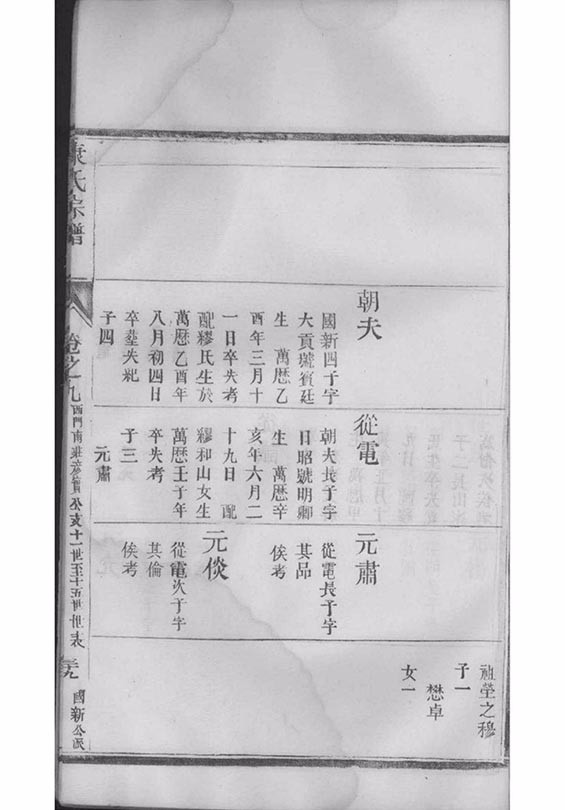 朝夫
國新四子字
大貢號賓廷
生 萬曆乙
酉年三月十
一日卒失考
配繆氏生於
萬曆乙酉年
八月初四日
卒塟失紀
子四
從電
朝夫長子字
日昭號明卿
生 萬曆辛
亥年六月二
十九日 配
繆和山女生
萬曆壬子年
卒失考
子三
元肅
元肅
從電長子字
其品
俟考
元倓
從電次子字
其倫
俟考
祖塋之穆
子一
懋卓
女一
氏宗譜
卷之九
西門南
公支十一世至十五世世表
國新公派